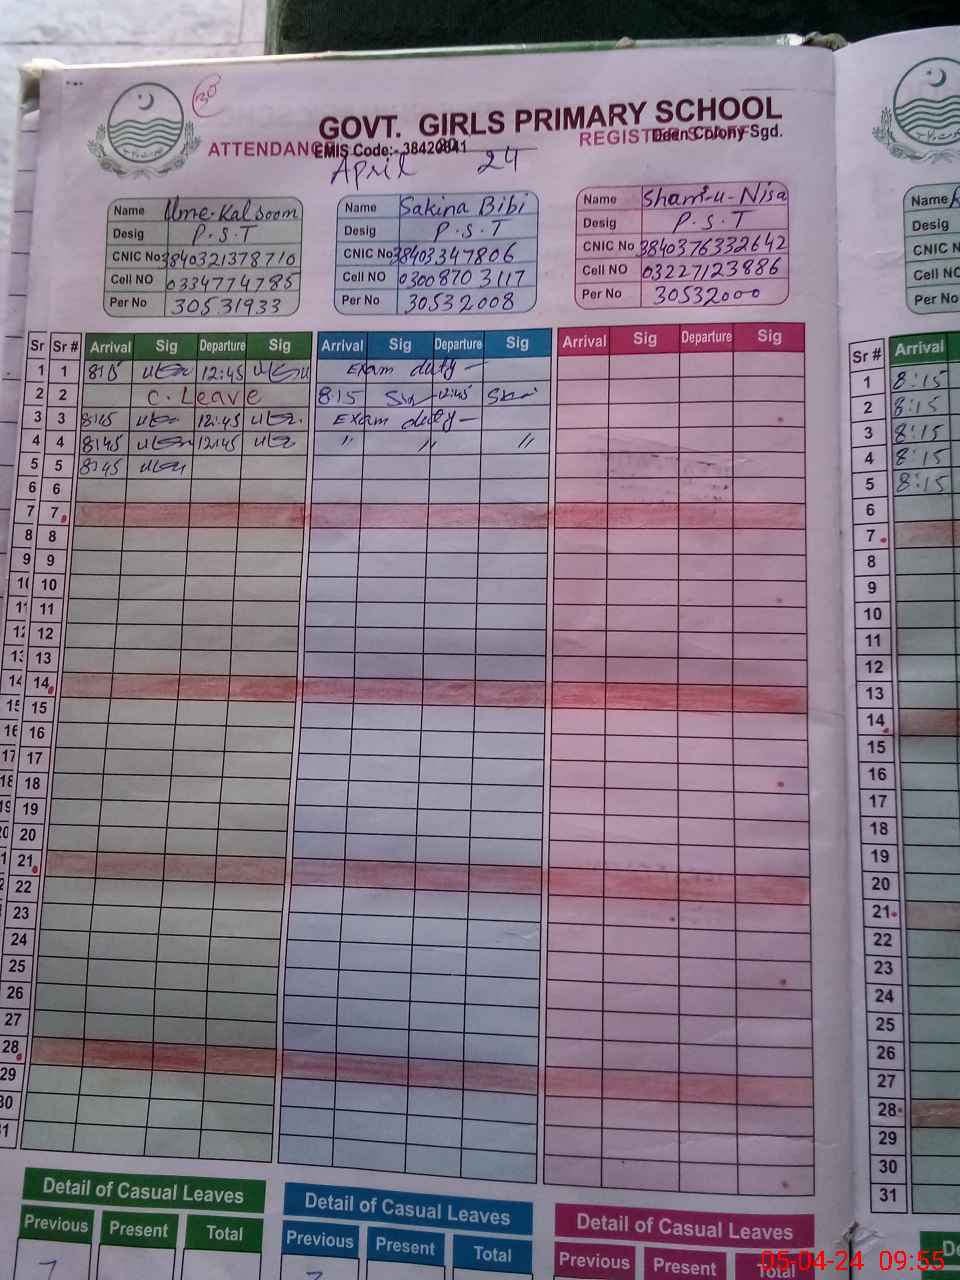 GOVT. GIRLS PRIMARY SCHOOL
ATTENDANCE REGISTER STAFF
Deen Colony Sgd.
EMIS Code:- 38420041
April 24
Name Ume-Kalsoom
Desig P.S.T
CNIC No 3840321378710
Cell NO 03334774785
Per No 30531933
Name Sakina Bibi
Desig P.S.T
CNIC No 38403347806
Cell NO 03008703117
Per No 30532008
Name Sham-u-Nisa
Desig P.S.T
CNIC No 3840376332642
Cell NO 03227123886
Per No 30532000
Name
Desig
CNIC N
Cell NO
Per No
Sr Sr # Arrival Sig Departure Sig Arrival Sig Departure Sig Arrival Sig Departure Sig
1 1 815 12:45 Exam duty
2 2 C. Leave 8:15 12:45
3 3 8:45 12:45 Exam duty
4 4 8:45 12:45 " " "
5 5 8:45
6 6
7 7
8 8
9 9
10 10
11 11
12 12
13 13
14 14
15 15
16 16
17 17
18 18
19 19
20 20
21 21
22 22
23
24
25
26
27
28
29
30
31
Sr # Arrival
1 8:15
2 8:15
3 8:15
4 8:15
5 8:15
6
7
8
9
10
11
12
13
14
15
16
17
18
19
20
21
22
23
24
25
26
27
28
29
30
31
Detail of Casual Leaves
Previous Present Total
Detail of Casual Leaves
Previous Present Total
Detail of Casual Leaves
Previous Present Total
05-04-24 09:55